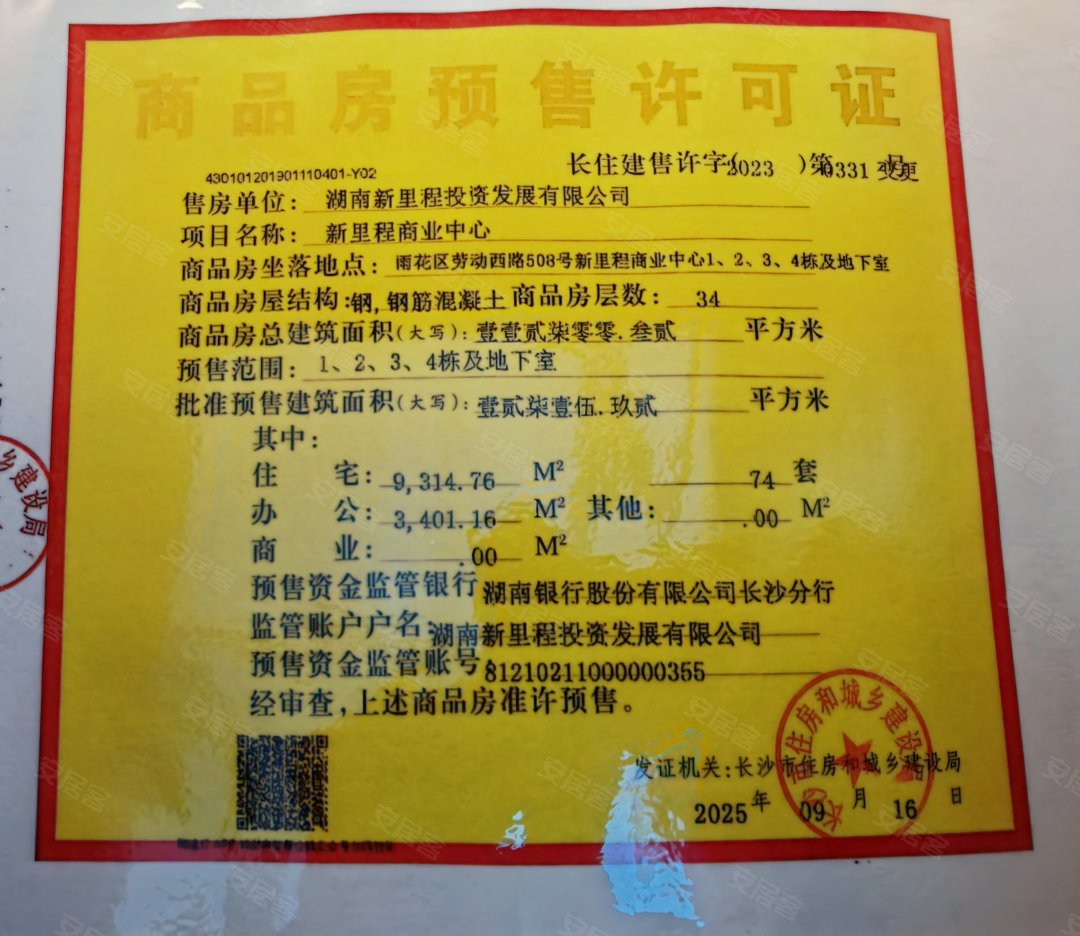 商品房预售许可证
长住建售许字(2023)第0331号变更
430101201901110401-Y02
售房单位：湖南新里程投资发展有限公司
项目名称：新里程商业中心
商品房坐落地点：雨花区劳动西路508号新里程商业中心1、2、3、4栋及地下室
商品房屋结构：钢,钢筋混凝土 商品房层数：34
商品房总建筑面积(大写)：壹壹贰柒零零.叁贰 平方米
预售范围：1、2、3、4栋及地下室
批准预售建筑面积(大写)：壹贰柒壹伍.玖贰 平方米
其中：
住宅：9,314.76 M² 74 套
办公：3,401.16 M² 其他：.00 M²
商业：.00 M²
预售资金监管银行 湖南银行股份有限公司长沙分行
监管账户户名：湖南新里程投资发展有限公司
预售资金监管账号：81210211000000355
经审查,上述商品房准许预售。
发证机关：长沙市住房和城乡建设局
2025年09月16日
长沙市住房和城乡建设局
乡建设局
安居客